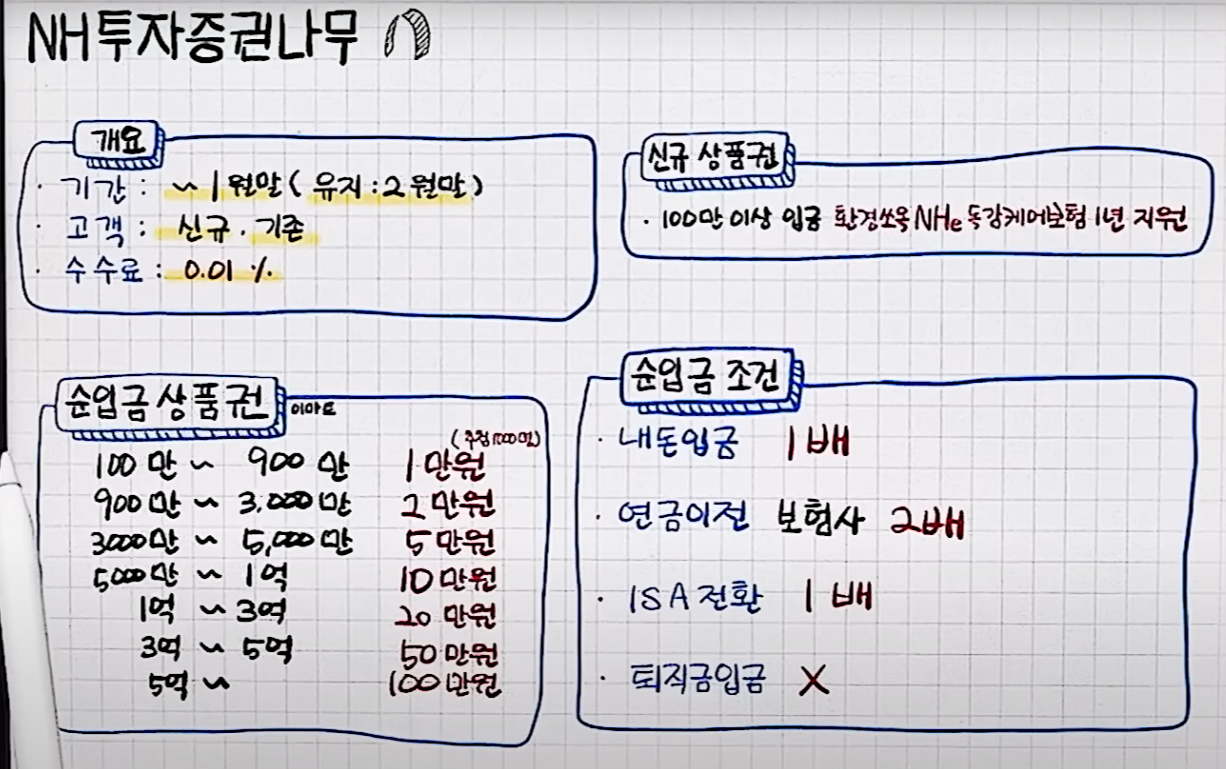 NH투자증권나무
개요
· 기간 : ~ 1월말 ( 유지 : 2월말 )
· 고객 : 신규 · 기존
· 수수료 : 0.01 %
신규 상품권
· 100만 이상 입금 환경쏘옥 NHe 독감케어보험 1년 지원
순입금 상품권 이마트
(추첨 1000명)
100만 ~ 900만 1만원
900만 ~ 3,000만 2만원
3000만 ~ 5,000만 5만원
5000만 ~ 1억 10만원
1억 ~ 3억 20만원
3억 ~ 5억 50만원
5억 ~ 100만원
순입금 조건
· 내돈입금 1배
· 연금이전 보험사 2배
· ISA전환 1배
· 퇴직금입금 X